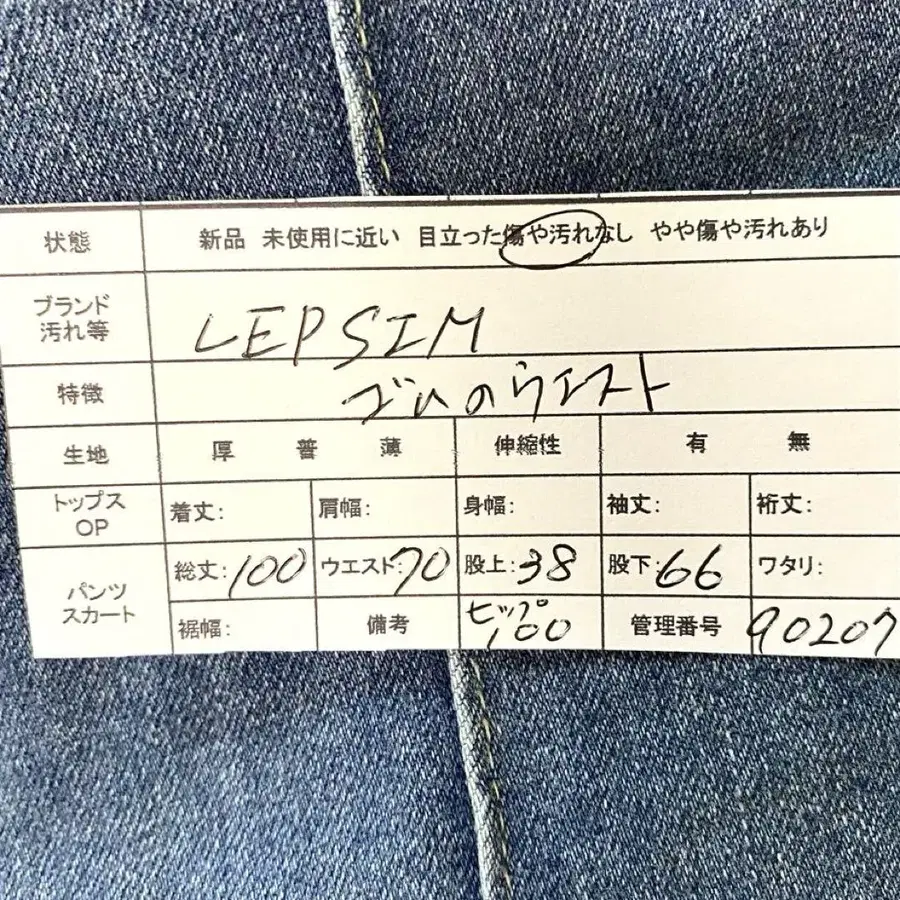 状態 新品 未使用に近い 目立った傷や汚れなし やや傷や汚れあり
ブランド
汚れ等 LEPSIM
特徴 ゴムのウエスト
生地 厚 普 薄 伸縮性 有 無
トップス
OP 着丈: 肩幅: 身幅: 袖丈: 裄丈:
パンツ
スカート 総丈:100 ウエスト:70 股上:38 股下:66 ワタリ:
裾幅: 備考 ヒップ
100 管理番号 90207